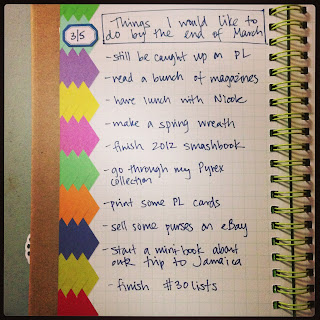 3/5
Things I would like to
do by the end of March
- still be caught up on PL
- read a bunch of magazines
- have lunch with Nicole
- make a spring wreath
- finish 2012 smashbook
- go through my Pyrex
collection
- print some PL cards
- sell some purses on eBay
- start a mini-book about
our trip to Jamaica
- finish #30lists